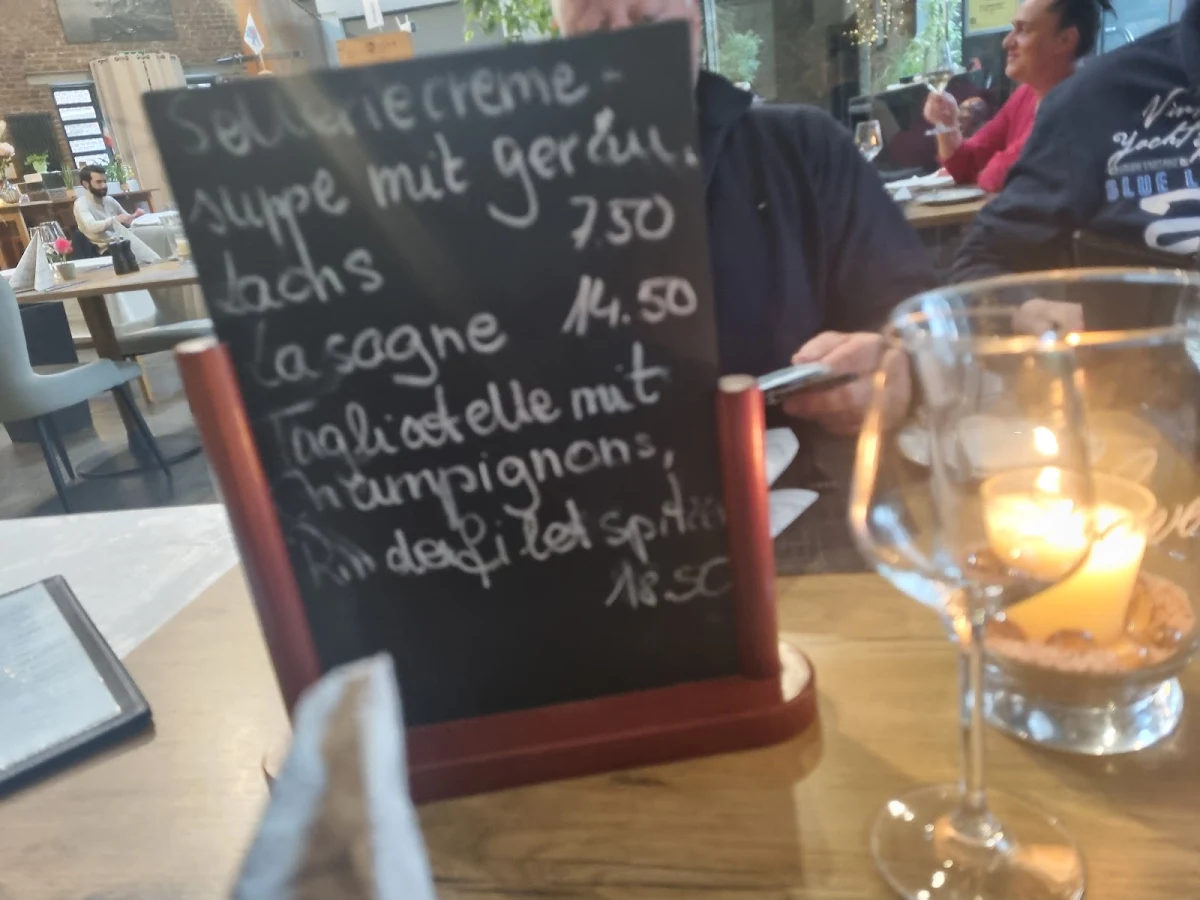 Selleriecreme-
suppe mit geräu.
7.50
Lachs
Lasagne 14.50
Tagliatelle mit
Champignons,
Rinderfilet Spitzen
18.50
Yacht
BLUE